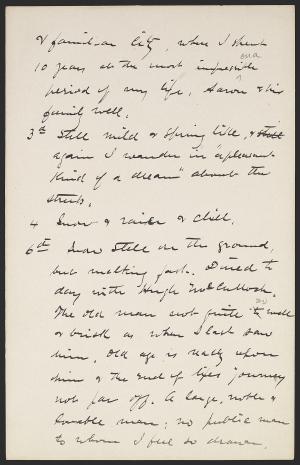 & familiar City, where I spent
10 years at the most impressible
period of my life. Aaron & his
family well.
3d Still mild & spring like, &
again I wander in "a pleasant
kind of a dream" about the
streets.
4 Snow & rain & chill.
6th Snow still on the ground,
but melting fast. Dined to
day with Hugh McCulloch.
The old man not quite so well
& brisk as when I last saw
him. Old age is really upon
him & the end of life's journey
not far off. A large, noble &
lovable man; no public man
to whom I feel so drawn.